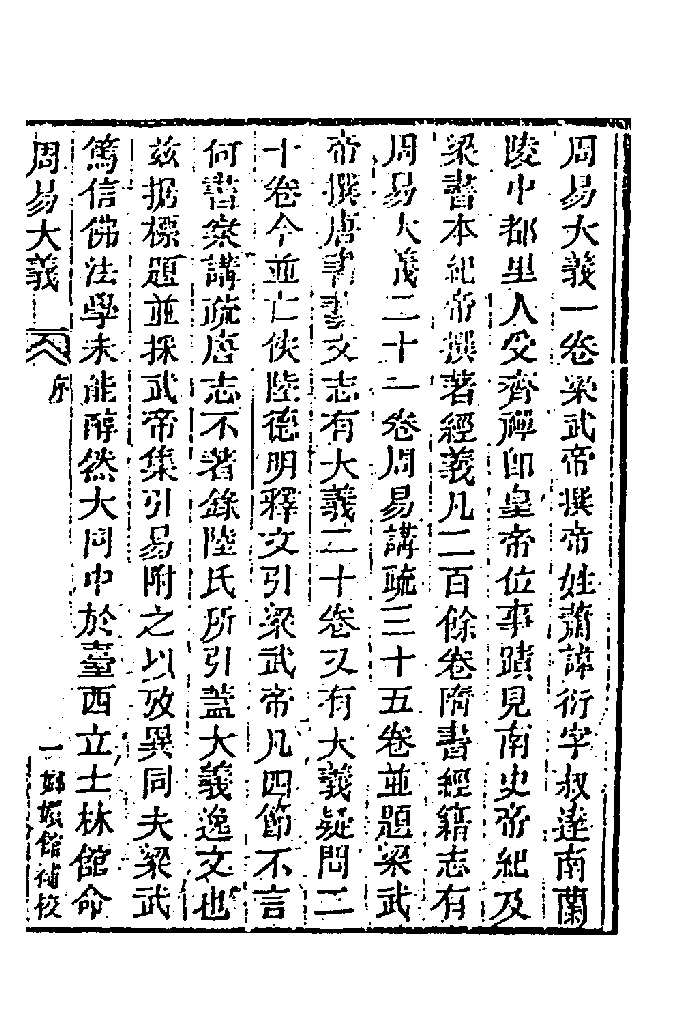 周易大義一卷梁武帝撰帝姓蕭諱衍字叔達南蘭
陵中都里人受齊禪即皇帝位事蹟見南史帝紀及
梁書本紀帝撰著經義凡二百餘卷隋書經籍志有
周易大義二十一卷周易講疏三十五卷並題梁武
帝撰唐書藝文志有大義二十卷又有大義疑問二
十卷今並亡佚陸德明釋文引梁武帝凡四節不言
何書案講疏唐志不著錄陸氏所引蓋大義逸文也
茲据標題並採武帝集引易附之以攷異同夫梁武
篤信佛法學未能醇然大同中於臺西立士林館命
周易大義
序
一
嫏嬛館補校